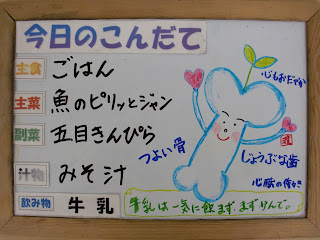 今日のこんだて
主食 ごはん
主菜 魚のピリッとジャン
副菜 五目きんぴら
汁物 みそ汁
飲み物 牛乳
心もおだやか
つよい骨
じょうぶな歯
心臓の働き
牛乳は一気に飲まず